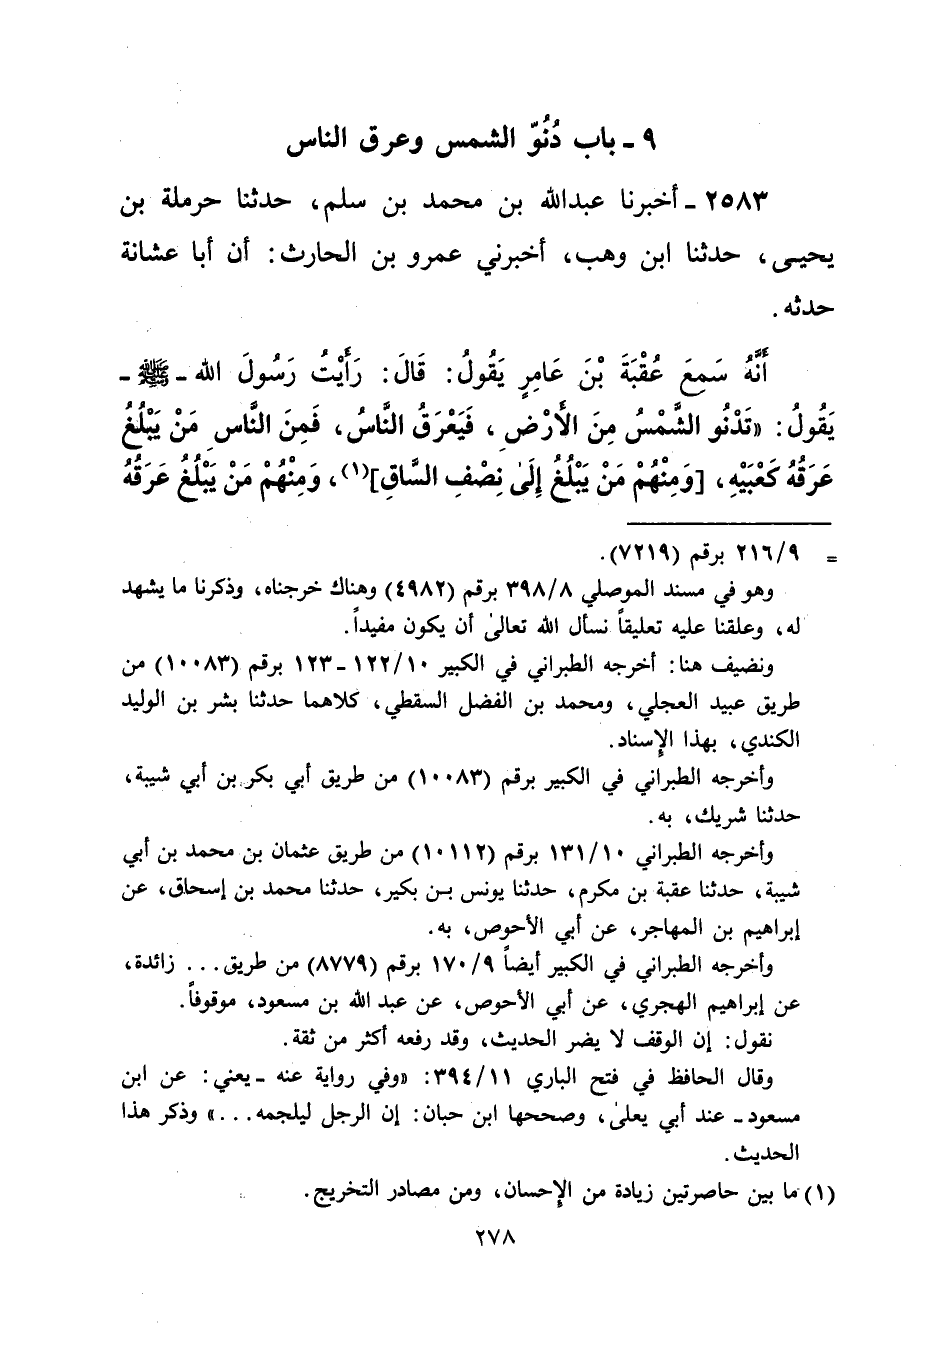 ٩ - باب دُنُوِّ الشمس وعرق الناس
٢٥٨٣ - أخبرنا عبدالله بن محمد بن سلم، حدثنا حرملة بن
يحيـى، حدثنا ابن وهب، أخبرني عمرو بن الحارث: أن أبا عشانة
حدثه.
أَنَّهُ سَمِعَ عُقْبَةَ بْنَ عَامِرٍ يَقُولُ: قَالَ: رَأَيْتُ رَسُولَ الله - ﷺ -
يَقُولُ: «تَدْنُو الشَّمْسُ مِنَ الْأَرْضِ، فَيَعْرَقُ النَّاسُ، فَمِنَ النَّاسِ مَنْ يَبْلُغُ
عَرَقُهُ كَعْبَيْهِ، [وَمِنْهُمْ مَنْ يَبْلُغُ إِلَىٰ نِصْفِ السَّاقِ](١)، وَمِنْهُمْ مَنْ يَبْلُغُ عَرَقُهُ
= ٢١٦/٩ برقم (٧٢١٩).
وهو في مسند الموصلي ٣٩٨/٨ برقم (٤٩٨٢) وهناك خرجناه، وذكرنا ما يشهد
له، وعلقنا عليه تعليقاً نسأل الله تعالىٰ أن يكون مفيداً.
ونضيف هنا: أخرجه الطبراني في الكبير ١٢٢/١٠ - ١٢٣ برقم (١٠٠٨٣) من
طريق عبيد العجلي، ومحمد بن الفضل السقطي، كلاهما حدثنا بشر بن الوليد
الكندي، بهذا الإسناد.
وأخرجه الطبراني في الكبير برقم (١٠٠٨٣) من طريق أبي بكر بن أبي شيبة،
حدثنا شريك، به.
وأخرجه الطبراني ١٣١/١٠ برقم (١٠١١٢) من طريق عثمان بن محمد بن أبي
شيبة، حدثنا عقبة بن مكرم، حدثنا يونس بن بكير، حدثنا محمد بن إسحاق، عن
إبراهيم بن المهاجر، عن أبي الأحوص، به.
وأخرجه الطبراني في الكبير أيضاً ١٧٠/٩ برقم (٨٧٧٩) من طريق... زائدة،
عن إبراهيم الهجري، عن أبي الأحوص، عن عبد الله بن مسعود، موقوفاً.
نقول: إن الوقف لا يضر الحديث، وقد رفعه أكثر من ثقة.
وقال الحافظ في فتح الباري ٣٩٤/١١: «وفي رواية عنه - يعني: عن ابن
مسعود - عند أبي يعلىٰ، وصححها ابن حبان: إن الرجل ليلجمه...» وذكر هذا
الحديث.
(١) ما بين حاصرتين زيادة من الإحسان، ومن مصادر التخريج.
٢٧٨